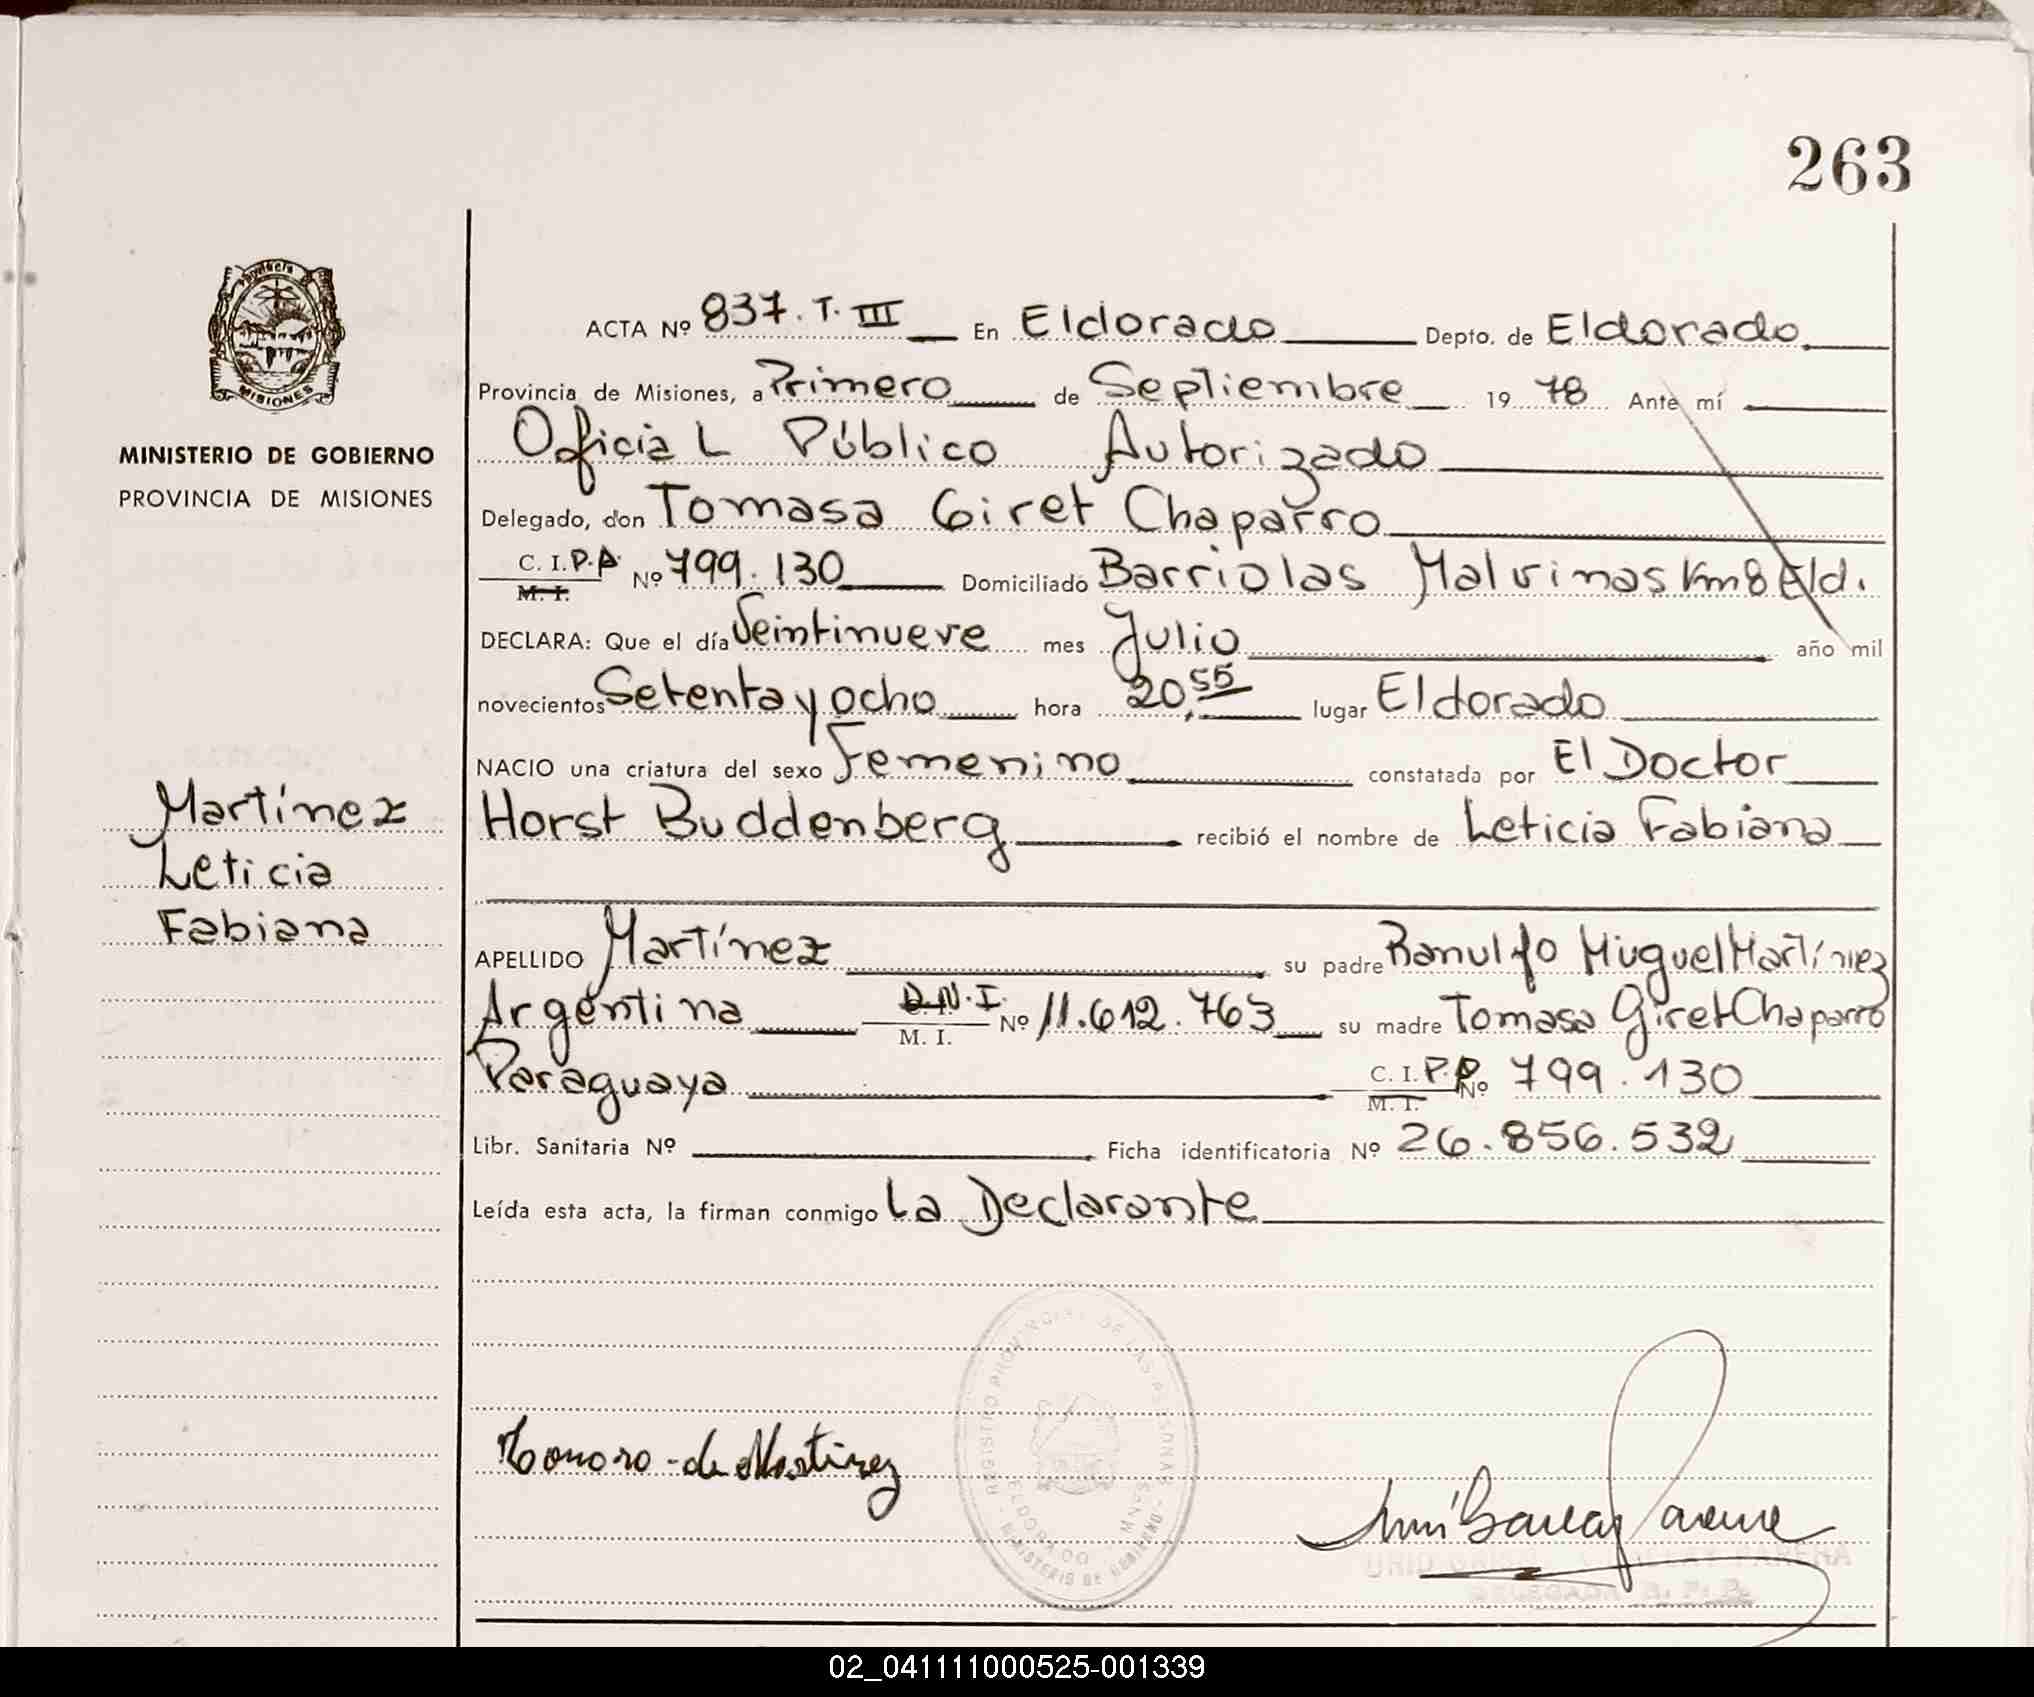 263
PROVINCIA
MISIONES
MINISTERIO DE GOBIERNO
PROVINCIA DE MISIONES
Martínez
Leticia
Fabiana
ACTA Nº 837. T. III En Eldorado Depto. de Eldorado
Provincia de Misiones, a Primero de Septiembre 19 78 Ante mí
Oficial Público Autorizado
Delegado, don Tomasa Giret Chaparro
C. I. P.P. M. I. Nº 799.130 Domiciliado Barrio las Malvinas Km 8 Eld.
DECLARA: Que el día Veintinueve mes Julio año mil
novecientos Setenta y ocho hora 20,55 lugar Eldorado
NACIO una criatura del sexo Femenino constatada por El Doctor
Horst Buddenberg recibió el nombre de Leticia Fabiana
APELLIDO Martínez su padre Ranulfo Miguel Martínez
Argentina D.N.I. M. I. Nº 11.612.763 su madre Tomasa Giret Chaparro
Paraguaya C. I. P.P. M. I. Nº 799.130
Libr. Sanitaria Nº Ficha identificatoria Nº 26.856.532
Leída esta acta, la firman conmigo La Declarante
REGISTRO PROVINCIAL DE LAS PERSONAS
ELDORADO MNES.
MINISTERIO DE GOBIERNO
de Martinez
PAREHA
DELEGADA R. P. P.
02_041111000525-001339